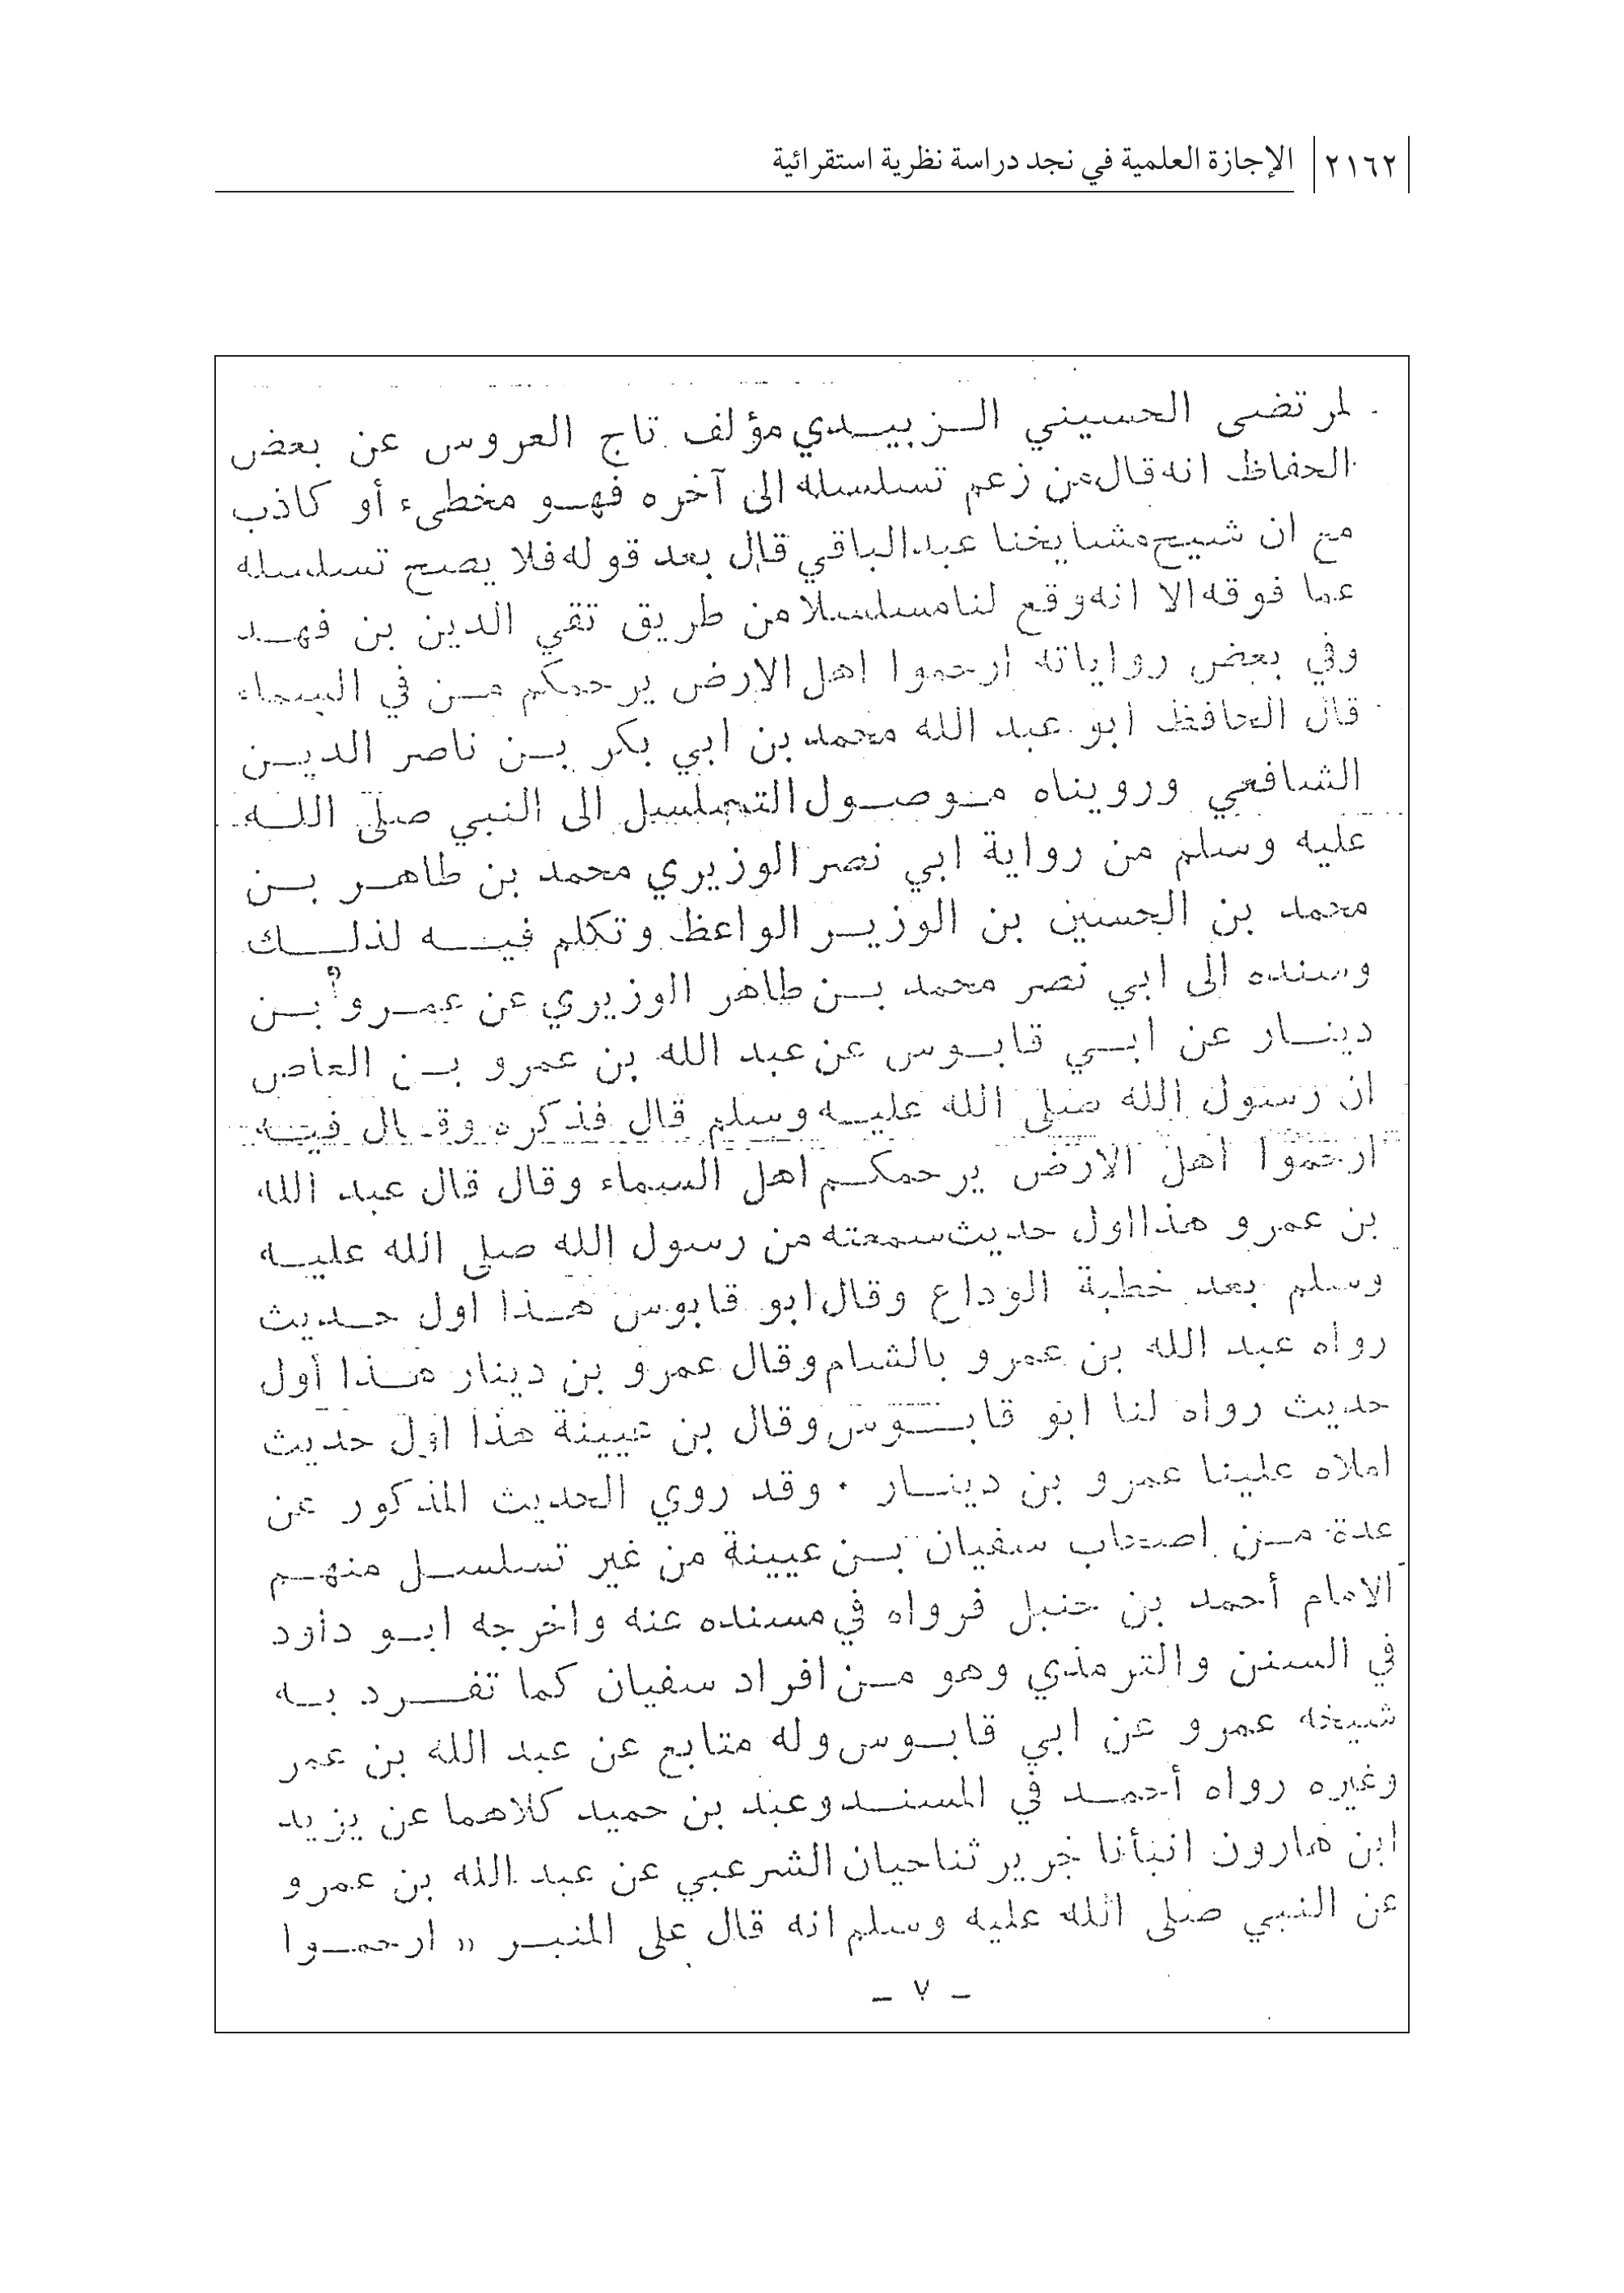 ٢١٦٢ الإجازة العلمية في نجد دراسة نظرية استقرائية
لمرتضى الحسيني الزبيدي مؤلف تاج العروس عن بعض
الحفاظ انه قال من زعم تسلسله الى آخره فهو مخطىء أو كاذب
مع ان شيح مشايخنا عبد الباقي قال بعد قوله فلا يصح تسلسله
عما فوقه الا انه وقع لنا مسلسلا من طريق تقي الدين بن فهد
وفي بعض رواياته ارحموا اهل الارض يرحمكم من في السماء
قال الحافظ ابو عبد الله محمد بن ابي بكر بن ناصر الدين
الشافعي ورويناه موصول التسلسل الى النبي صلى الله
عليه وسلم من رواية ابي نصر الوزيري محمد بن طاهر بن
محمد بن الحسين بن الوزير الواعظ وتكلم فيه لذلك
وسنده الى ابي نصر محمد بن طاهر الوزيري عن عمرو بن
دينار عن ابي قابوس عن عبد الله بن عمرو بن العاص
ان رسول الله صلى الله عليه وسلم قال فذكره وقال فيه
ارحموا اهل الارض يرحمكم اهل السماء وقال قال عبد الله
بن عمرو هذا اول حديث سمعته من رسول الله صلى الله عليه
وسلم بعد خطبة الوداع وقال ابو قابوس هذا اول حديث
رواه عبد الله بن عمرو بالشام وقال عمرو بن دينار هذا أول
حديث رواه لنا ابو قابوس وقال بن عيينة هذا اول حديث
املاه علينا عمرو بن دينار . وقد روي الحديث المذكور عن
عدة من اصحاب سفيان بن عيينة من غير تسلسل منهم
الامام أحمد بن حنبل فرواه في مسنده عنه واخرجه ابو داود
في السنن والترمذي وهو من افراد سفيان كما تفرد به
شيخه عمرو عن ابي قابوس وله متابع عن عبد الله بن عمر
وغيره رواه أحمد في المسند وعبد بن حميد كلاهما عن يزيد
ابن هارون انبأنا جرير ثنا حيان الشرعبي عن عبد الله بن عمرو
عن النبي صلى الله عليه وسلم انه قال على المنبر « ارحموا
- ٧ -